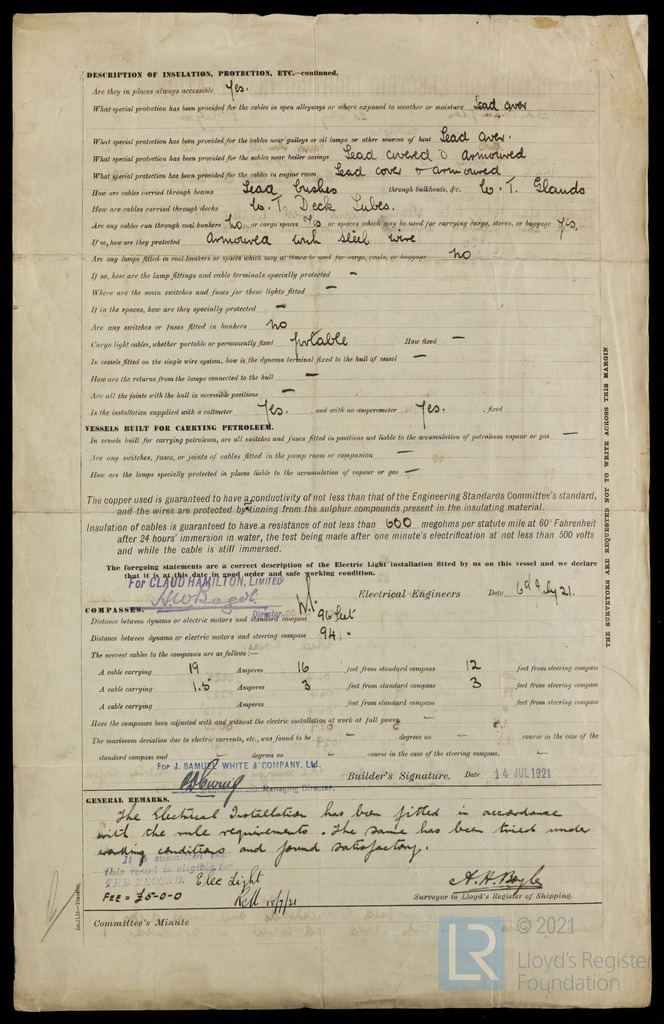 DESCRIPTION OF INSULATION, PROTECTION, ETC.—continued.
Are they in places always accessible Yes.
What special protection has been provided for the cables in open alleyways or where exposed to weather or moisture Lead over
What special protection has been provided for the cables near galleys or oil lamps or other sources of heat Lead over.
What special protection has been provided for the cables near boiler casings Lead covered & armoured
What special protection has been provided for the cables in engine room Lead cover & armoured
How are cables carried through beams Lead bushes through bulkheads, &c. W. T. Glands
How are cables carried through decks W. T. Deck Tubes.
Are any cables run through coal bunkers No or cargo spaces Yes or spaces which may be used for carrying cargo, stores, or baggage Yes.
If so, how are they protected Armoured with steel wire
Are any lamps fitted in coal bunkers or spaces which may at times be used for cargo, coals, or baggage No
If so, how are the lamp fittings and cable terminals specially protected —
Where are the main switches and fuses for these lights fitted —
If in the spaces, how are they specially protected —
Are any switches or fuses fitted in bunkers No
Cargo light cables, whether portable or permanently fixed Portable How fixed —
In vessels fitted on the single wire system, how is the dynamo terminal fixed to the hull of vessel —
How are the returns from the lamps connected to the hull —
Are all the joints with the hull in accessible positions —
Is the installation supplied with a voltmeter Yes. , and with an amperemeter Yes. , fixed
VESSELS BUILT FOR CARRYING PETROLEUM.
In vessels built for carrying petroleum, are all switches and fuses fitted in positions not liable to the accumulation of petroleum vapour or gas —
Are any switches, fuses, or joints of cables fitted in the pump room or companion —
How are the lamps specially protected in places liable to the accumulation of vapour or gas —
The copper used is guaranteed to have a conductivity of not less than that of the Engineering Standards Committee's standard,
and the wires are protected by tinning from the sulphur compounds present in the insulating material.
Insulation of cables is guaranteed to have a resistance of not less than 600 megohms per statute mile at 60° Fahrenheit
after 24 hours' immersion in water, the test being made after one minute's electrification at not less than 500 volts
and while the cable is still immersed.
The foregoing statements are a correct description of the Electric Light installation fitted by us on this vessel and we declare
that it is at this date in good order and safe working condition.
For CLAUD HAMILTON, LIMITED
Director. Electrical Engineers Date 6th July 21.
COMPASSES.
Distance between dynamo or electric motors and standard compass 96 feet
Distance between dynamo or electric motors and steering compass 94 "
The nearest cables to the compasses are as follows:—
A cable carrying 19 Amperes 16 feet from standard compass 12 feet from steering compass
A cable carrying 1.5 Amperes 3 feet from standard compass 3 feet from steering compass
A cable carrying Amperes feet from standard compass feet from steering compass
Have the compasses been adjusted with and without the electric installation at work at full power —
The maximum deviation due to electric currents, etc., was found to be — degrees on — course in the case of the
standard compass and — degrees on — course in the case of the steering compass. —
For J. SAMUEL WHITE & COMPANY, Ltd.
Managing Director. Builder's Signature. Date 14 JUL 1921
GENERAL REMARKS.
The Electrical Installation has been fitted in accordance
with the rule requirements. The same has been tried under
working conditions and found satisfactory.
It is submitted that
this vessel is eligible for
THE RECORD. Elec Light
FEE = £5-0-0 18/7/21
A. H. Boyle
Surveyor to Lloyd's Register of Shipping.
Committee's Minute
THE SURVEYORS ARE REQUESTED NOT TO WRITE ACROSS THIS MARGIN
LR
© 2021
Lloyd's Register
Foundation